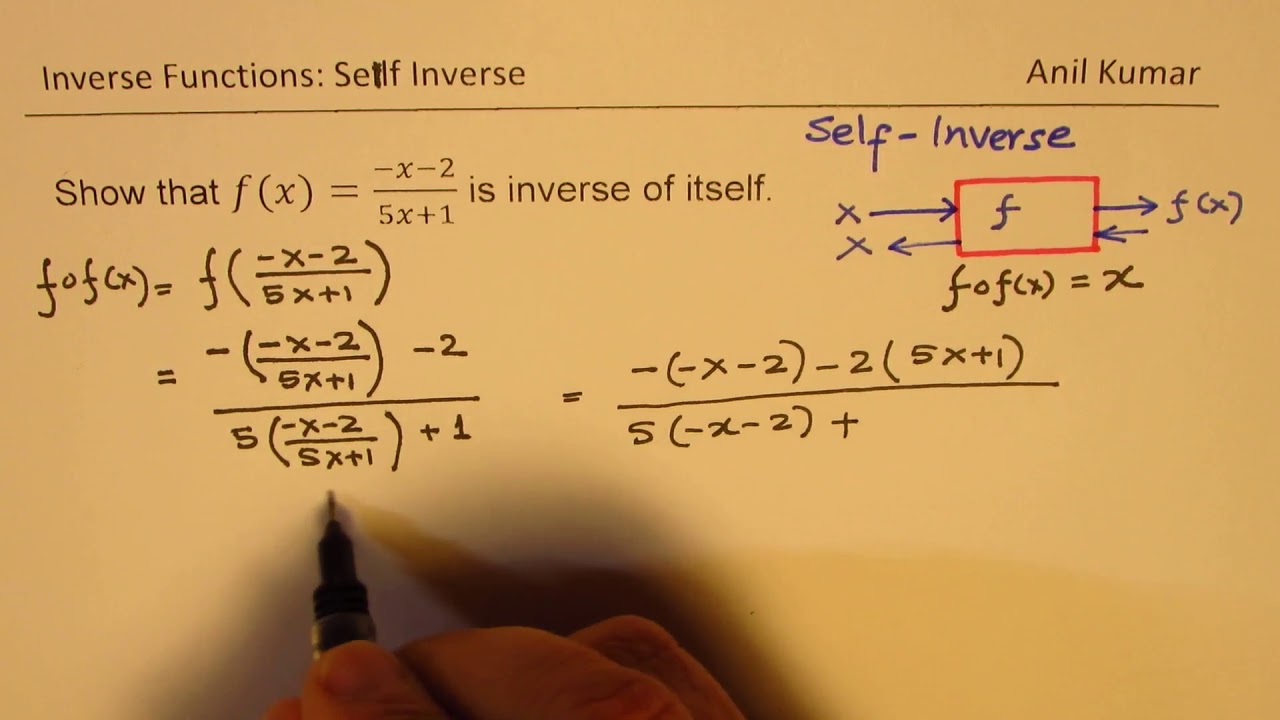 Inverse Functions: Self Inverse
Anil Kumar
Self-Inverse
Show that f(x) = (-x-2)/(5x+1) is inverse of itself.
x → f → f(x)
x ←   ←
fof(x) = x
fof(x) = f((-x-2)/(5x+1))
= (-((-x-2)/(5x+1)) -2)/(5((-x-2)/(5x+1)) + 1) = (-(-x-2) -2(5x+1))/(5(-x-2) +